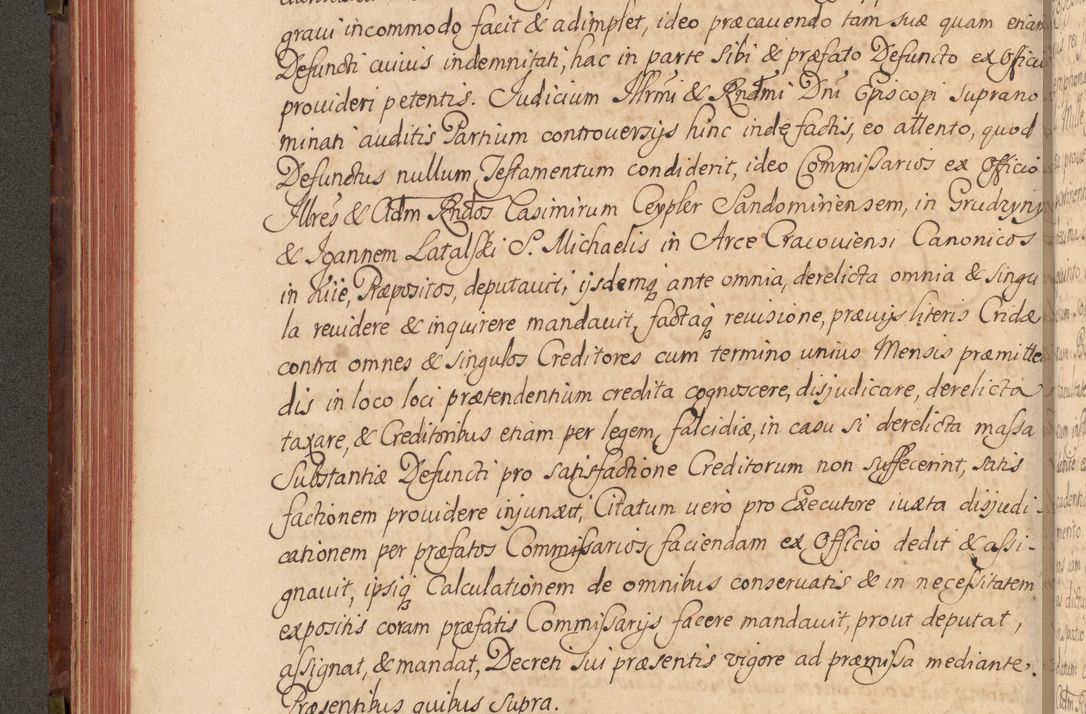 graui incommodo facit & adimplet, ideo præcauendo tam suæ quam etiam
Defuncti cuius indemnitati, hac in parte sibi & præfato Defuncto ex Officio
prouideri petentis. Judicium Illrmi & Rndmi Dni Episcopi supranо
minati auditis Partium controuersijs hinc inde factis, eo attento, quod
Defunctus nullum Testamentum condiderit, ideo Commissarios ex Officio
Illres & Adm Rndos Casimirum Ceypler Sandomiriensem, in Grudzyny
& Joannem Latalski S. Michaelis in Arce Cracouiensi Canonicos
in Præpositos, deputauit, ijsdemq ante omnia, derelicta omnia & singu
la reuidere & inquirere mandauit, factaq reuisione, præuijs literis Cridæ
contra omnes & singulos Creditores cum termino unius Mensis præmitten
dis in loco loci prætendentium credita cognoscere, disjudicare, derelicta
taxare, & Creditoribus etiam per legem, falcidiæ, in casu si derelicta massa
Substantiæ Defuncti pro satisfactione Creditorum non suffecerint, satis
factionem prouidere injunxit, Citatum uerò pro Executore iuxta disjudi-
cationem per præfatos Commissarios faciendam ex Officio dedit & assi-
gnauit, ipsiq Calculationem de omnibus conseruatis & in necessitatem
expositis coram præfatis Commissarijs facere mandauit, prout deputat,
assignat, & mandat, Decreti sui præsentis vigore ad præmissa mediante.
Præsentibus quibus supra.